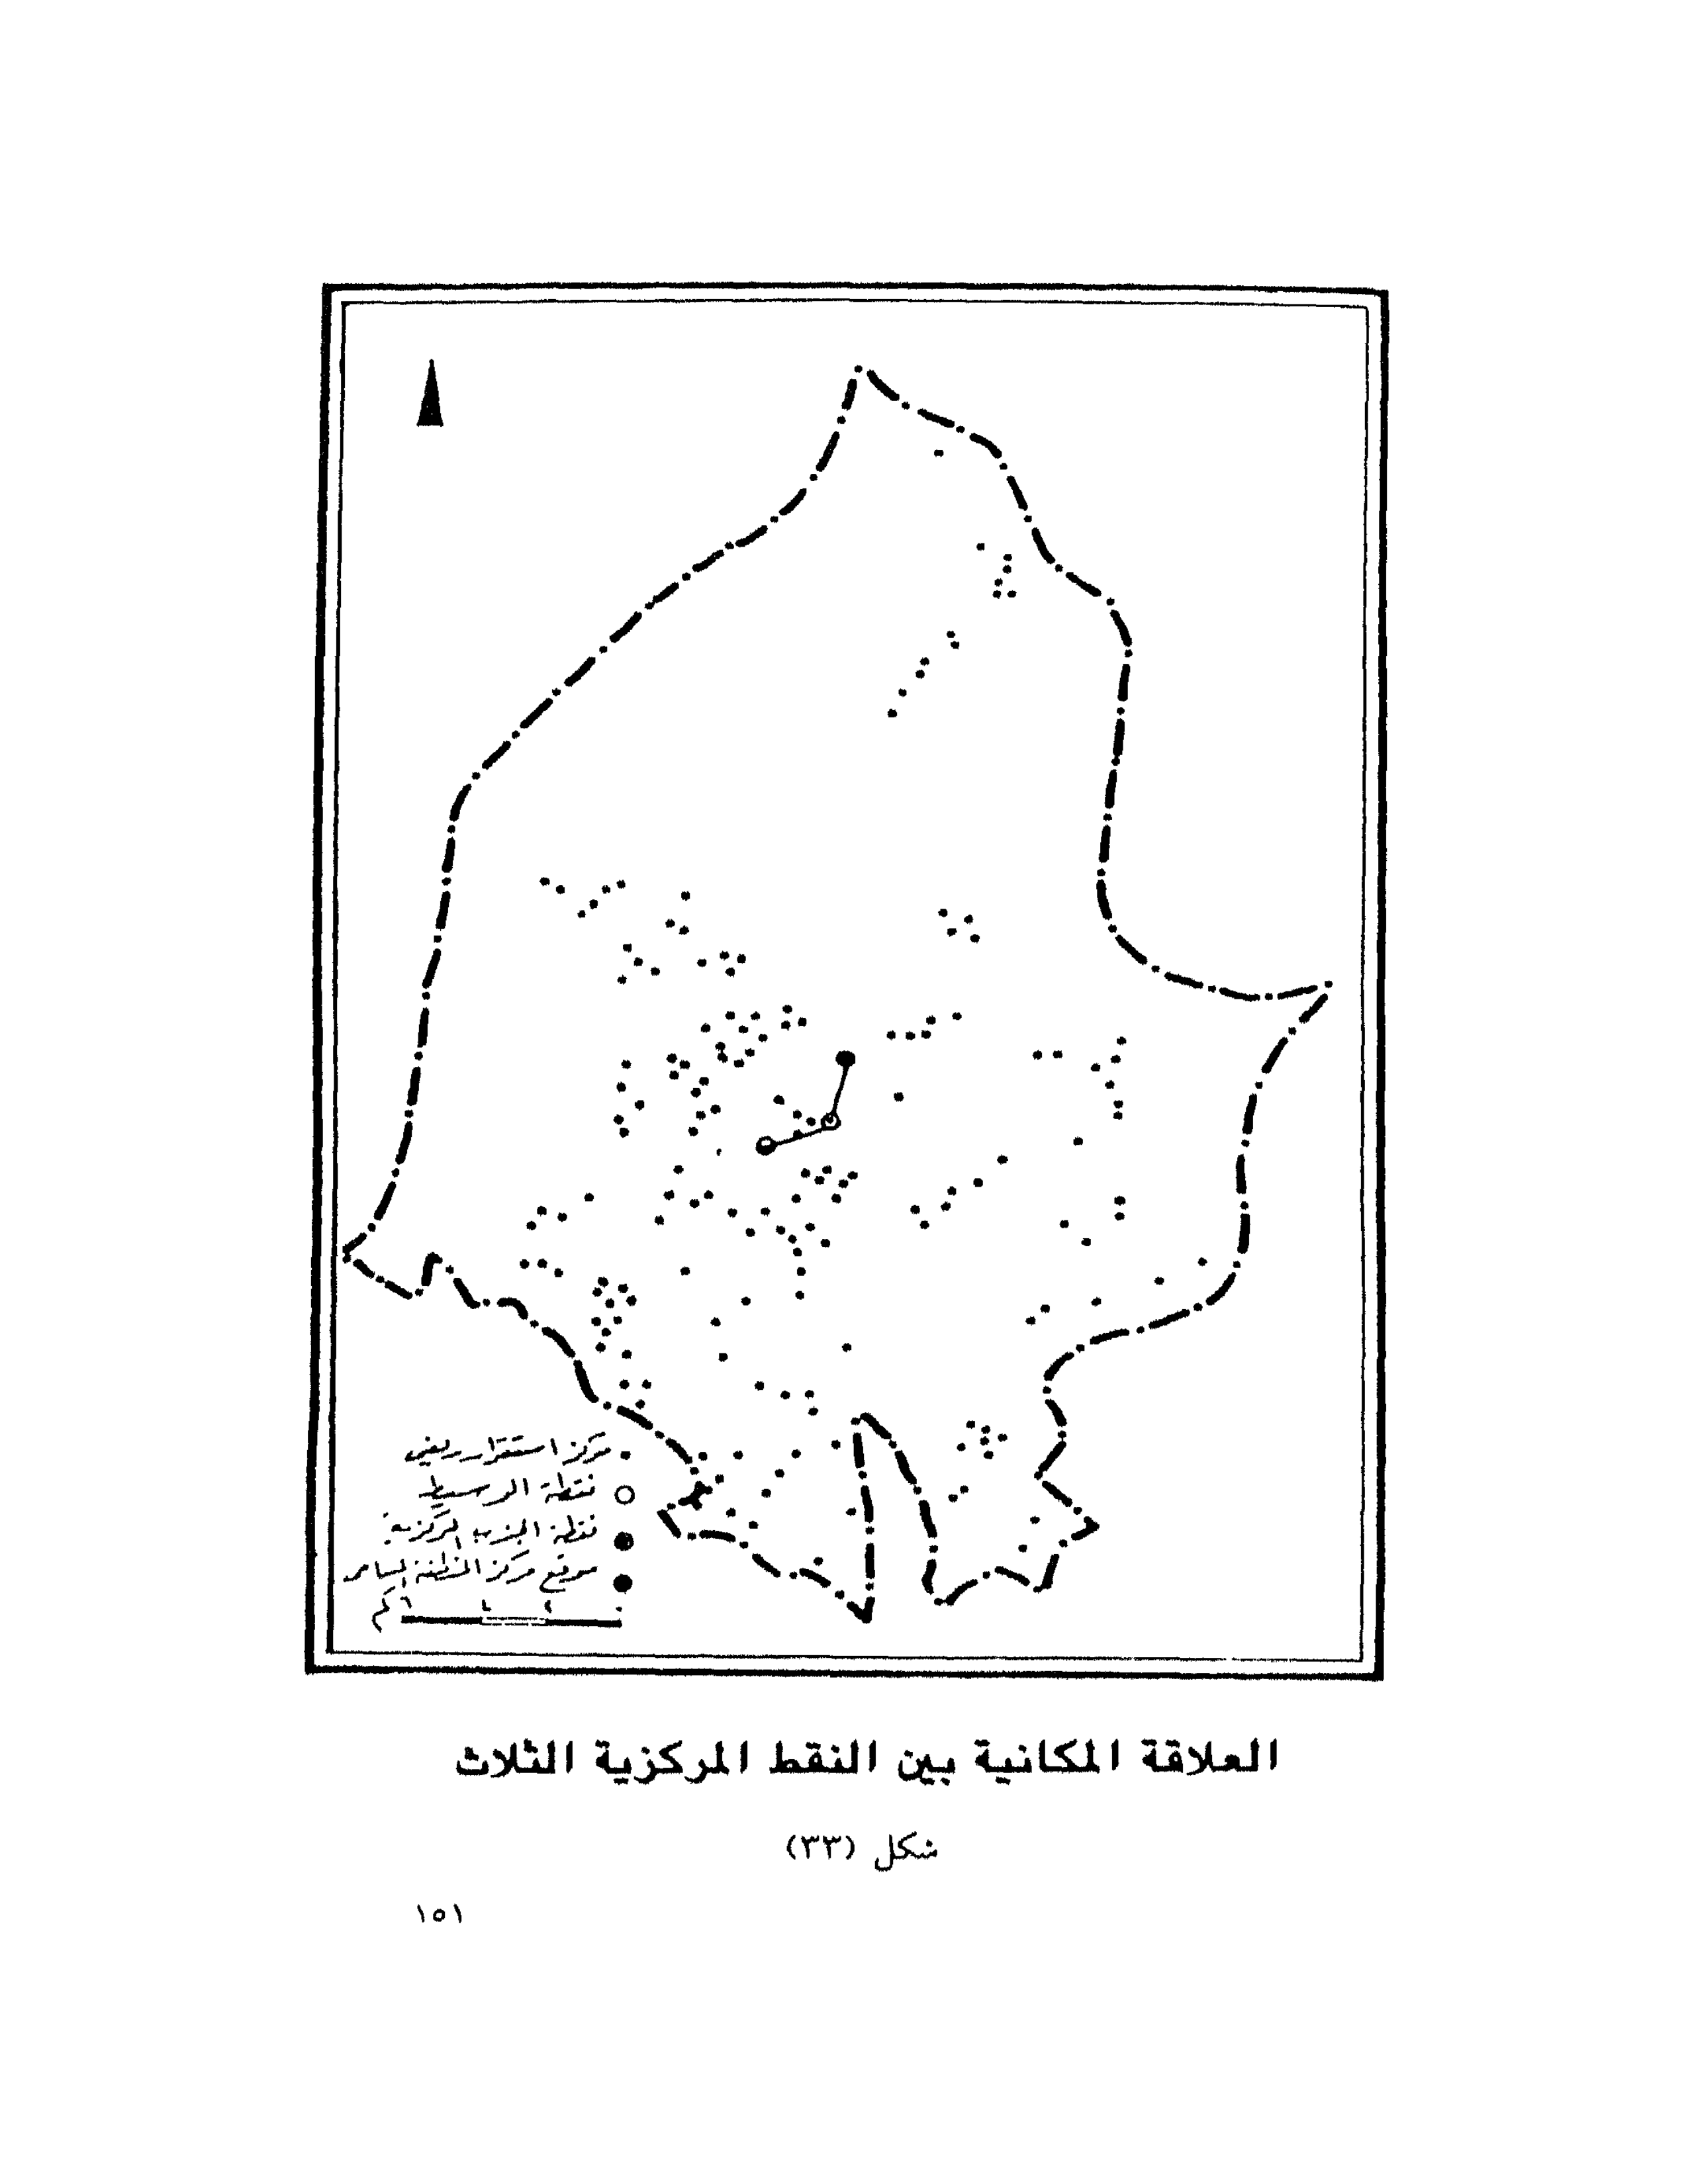 مركز استقرار ريفي
نقطة الوسيط
نقطة الجذب المركزية
موقع مركز المنطقة
كم
العلاقة المكانية بين النقط المركزية الثلاث
شكل (٣٣)
١٥١